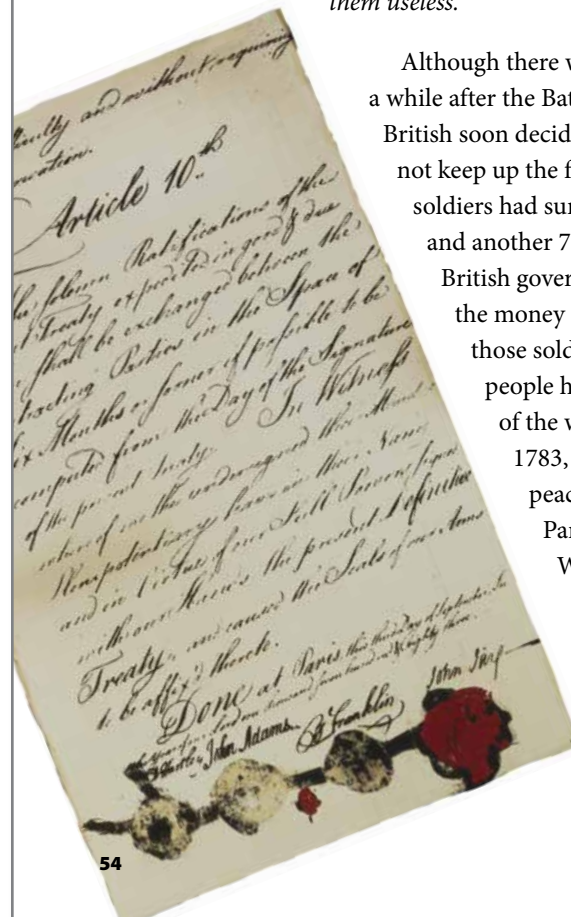 them useless.
Although there w
a while after the Bat
British soon decid
not keep up the f
soldiers had sur
and another 7
British gover
the money
those sold
people h
of the w
1783,
peac
Par
W
iculty and without requiring
Article 10th
solemn Ratifications of the
t Treaty expedited in good & due
shall be exchanged between the
tracting Parties in the Space of
ix Months or sooner if possible to be
computed from the Day of the Signature
of the present Treaty. In Witness
whereof we the undersigned their
Plenipotentiary have in their Name
and in Virtue of our Full Powers
with our Hands the present Definitive
Treaty, and caused the Seals of our Arms
to be affix'd thereto.
Done at Paris, this third Day of September, In
the Year of our Lord one thousand seven hundred & eighty three.
D Hartley John Adams B Franklin John Jay
54